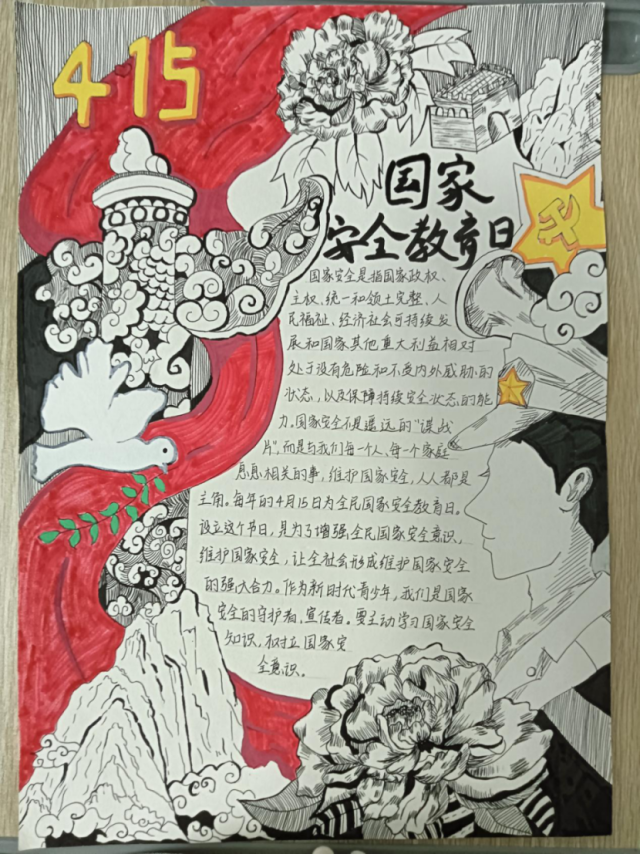 415
国家
安全教育日
国家安全是指国家政权、
主权、统一和领土完整、人
民福祉、经济社会可持续发
展和国家其他重大利益相对
处于没有危险和不受内外威胁的
状态，以及保障持续安全状态的能
力。国家安全不是遥远的“谍战
片”，而是与我们每一个人、每一个家庭
息息相关的事，维护国家安全，人人都是
主角。每年的4月15日为全民国家安全教育日。
设立这个节日，是为了增强全民国家安全意识，
维护国家安全，让全社会形成维护国家安全
的强大合力。作为新时代青少年，我们是国家
安全的守护者、宣传者。要主动学习国家安全
知识，树立国家安
全意识。